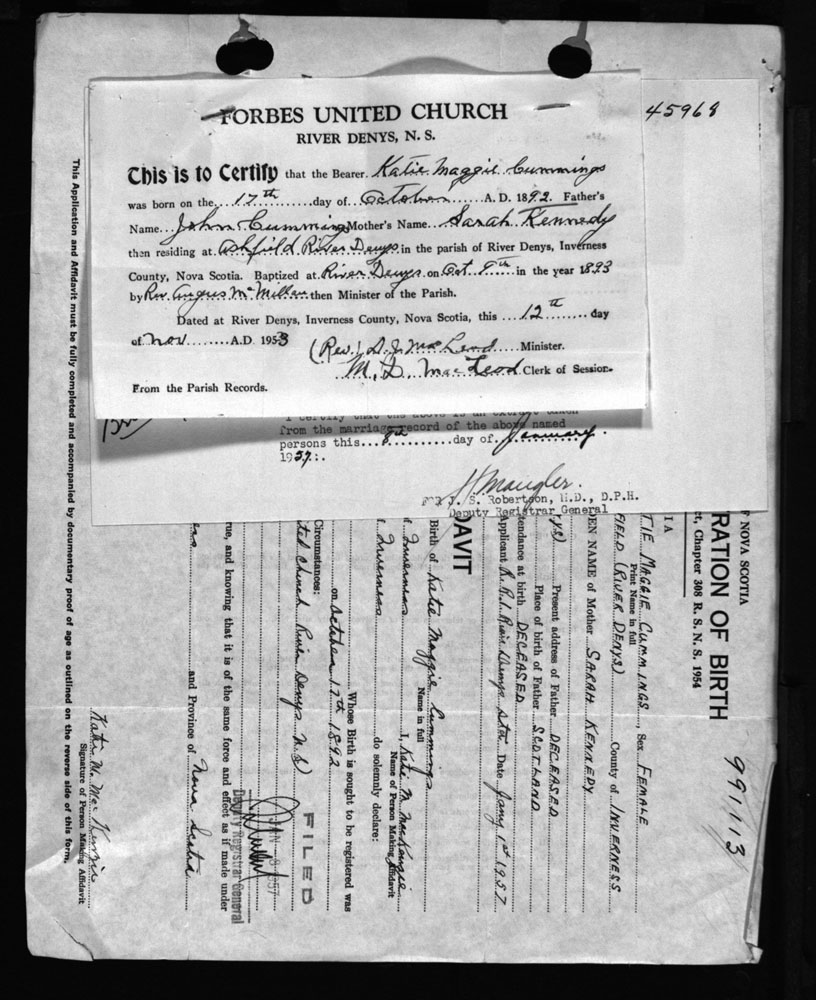 FORBES UNITED CHURCH
RIVER DENYS, N. S.
45968
This is to Certify that the Bearer. Katie Maggie Cummings
was born on the....17th......day of...October........A. D. 1892. Father's
Name...John Cummings Mother's Name...Sarah Kennedy
then residing at Ashfield River Denys in the parish of River Denys, Inverness
County, Nova Scotia. Baptized at River Denys on Oct 8th in the year 1893
by Rev. Angus McMillan then Minister of the Parish.
Dated at River Denys, Inverness County, Nova Scotia, this ....12th........ day
of Nov........A.D. 1953
(Rev.) D. J. MacLeod.....Minister.
M. D. MacLeod Clerk of Session.
From the Parish Records.
I certify that the above is an extract taken
from the marriage record of the above named
persons this...8th..........day of January.
1957.
H Maugler.
J. S. Robertson, M.D., D.P.H.
Deputy Registrar General
991113
OF NOVA SCOTIA
RATION OF BIRTH
ct, Chapter 308 R. S. N. S. 1954
IA
TIE MAGGIE CUMMINGS, Sex FEMALE
Print Name in full
FIELD (RIVER DENYS) County of INVERNESS
EN NAME of Mother SARAH KENNEDY
YS) Present address of Father DECEASED
Place of birth of Father SCOTLAND
tendance at birth DECEASED
Applicant R.R.1. River Denys Sta. Date Jany 1st 1957
DAVIT
I, Katie M MacKenzie
Name of Person Making Affidavit
of Inverness
f. Inverness do solemnly declare:
Birth of Katie Maggie Cummings
Name in full
Whose Birth is sought to be registered was
on October 17th 1892
Circumstances:
ted Church River Denys N.S)
FILED
JAN 8 1957
Deputy Registrar General
rue, and knowing that it is of the same force and effect as if made under
ess and Province of Nova Scotia
Katie M. MacKenzie
Signature of Person Making Affidavit
This Application and Affidavit must be fully completed and accompanied by documentary proof of age as outlined on the reverse side of this form.